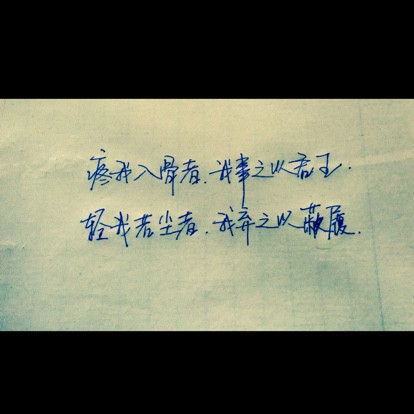 疼我入骨者.我事之以君王.
轻我若尘者.我弃之以蔽履.